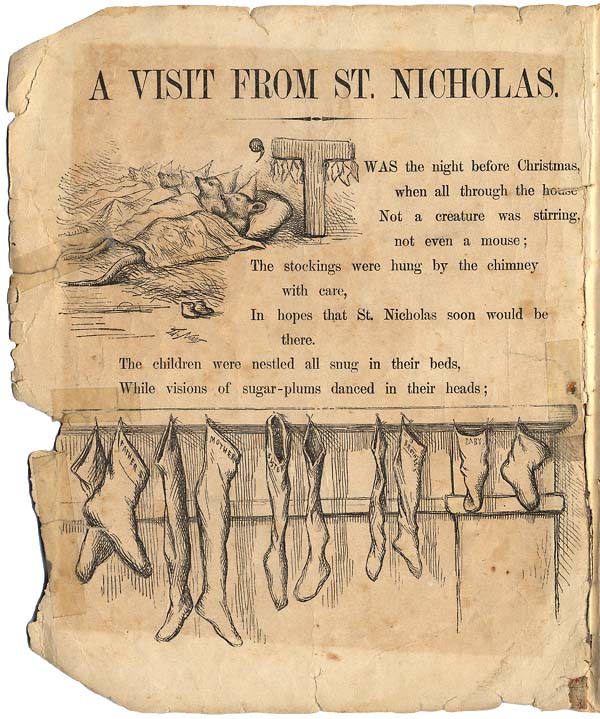 A VISIT FROM ST. NICHOLAS.
'TWAS the night before Christmas,
when all through the house
Not a creature was stirring,
not even a mouse;
The stockings were hung by the chimney
with care,
In hopes that St. Nicholas soon would be
there.
The children were nestled all snug in their beds,
While visions of sugar-plums danced in their heads;
FATHER
MOTHER
SISTER
BROTHER
BABY